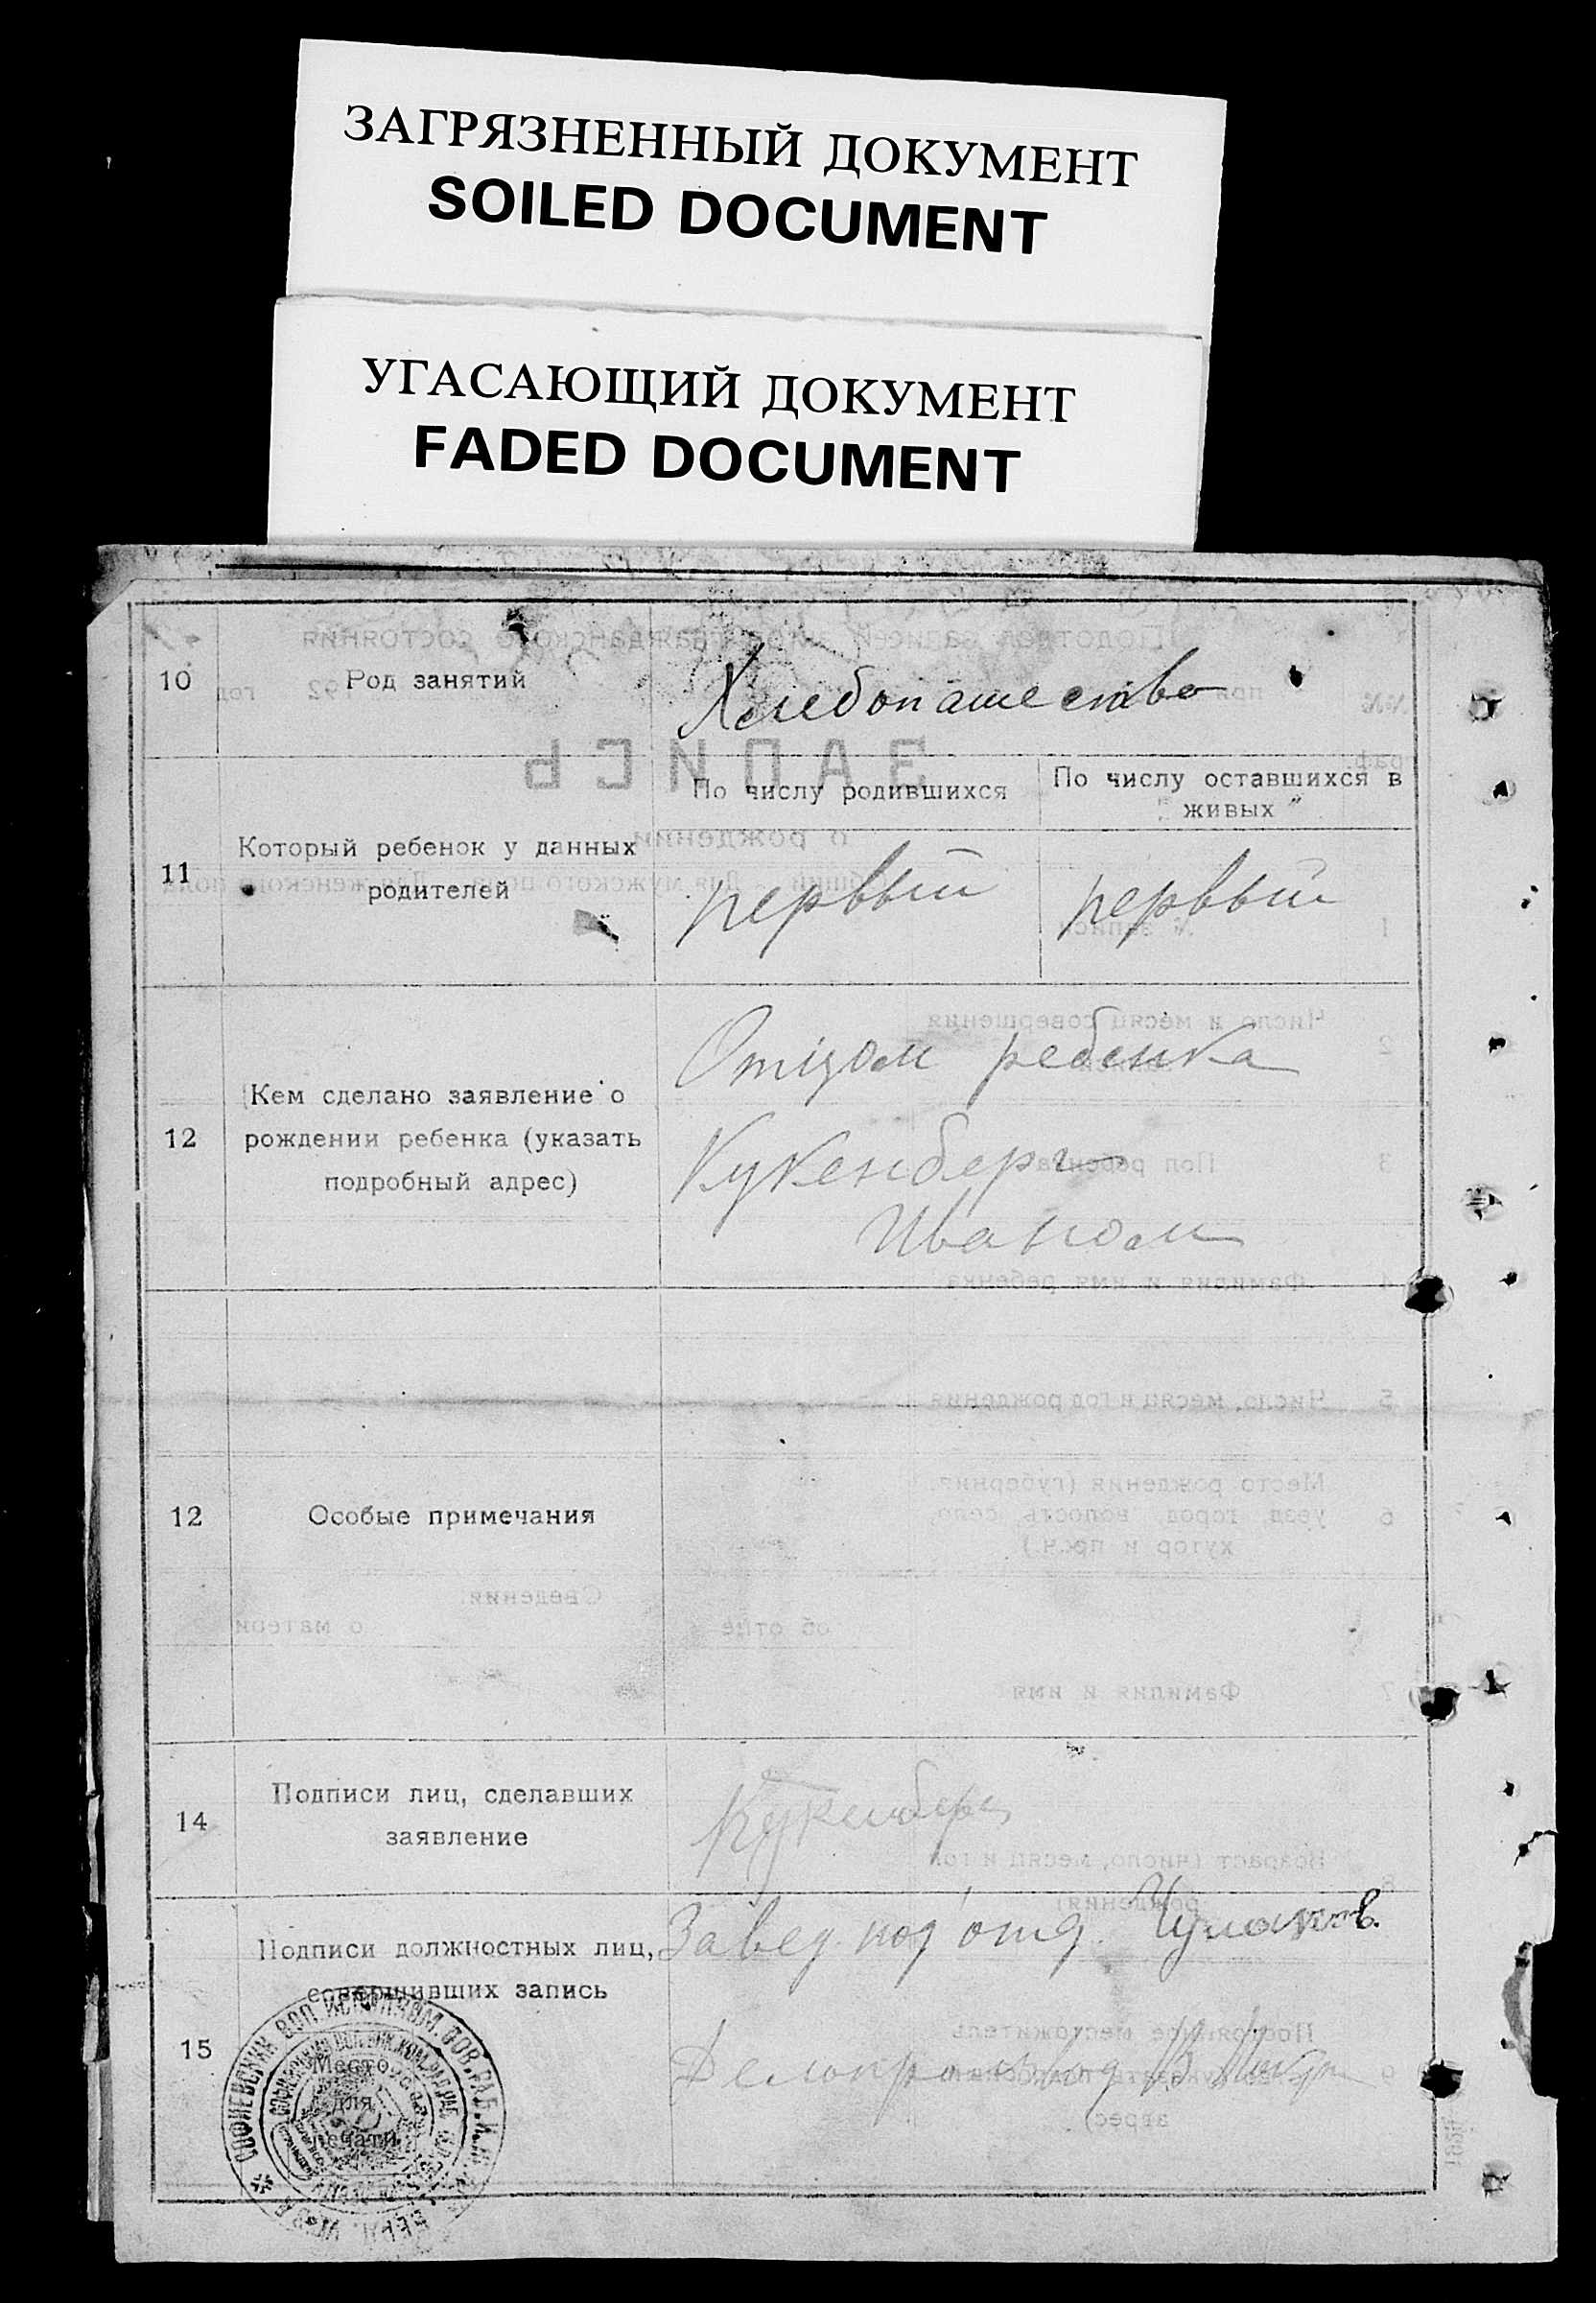 ЗАГРЯЗНЕННЫЙ ДОКУМЕНТ
SOILED DOCUMENT
УГАСАЮЩИЙ ДОКУМЕНТ
FADED DOCUMENT
10 Род занятий Хлебопашество
11 Который ребенок у данных родителей
По числу родившихся
По числу оставшихся в
живых
первый первый
12 Кем сделано заявление о
рождении ребенка (указать
подробный адрес)
Отцом ребенка
Кукенберг
Иваном
12 Особые примечания
14 Подписи лиц, сделавших
заявление
Кукенберг
15 Подписи должностных лиц,
совершивших запись
Завед. под'отд.
Делопроизвод
Место
для
печати
СОФИЕВСКИЙ ВОЛ. ИСПОЛКОМ. СОВ. РАБ.